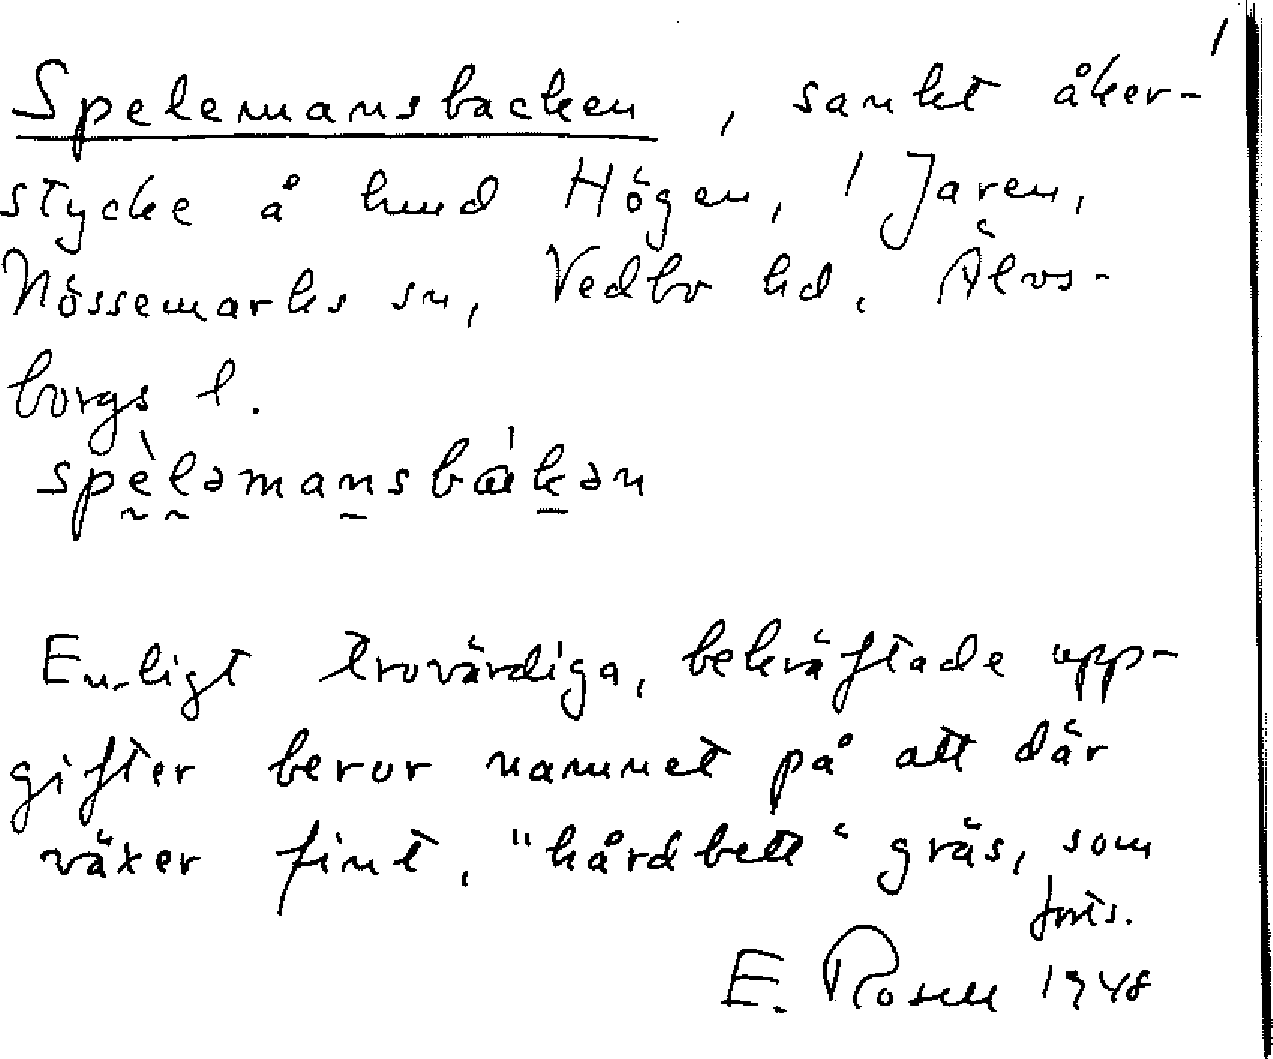 1
Spelemansbacken, sankt åker-
stycke å hmd Högen, 1 Jaren,
Nössemarks sn, Vedbo hd, Älvs-
borgs l.
spèləmansbákən
Enligt trovärdiga, bekräftade upp-
gifter beror namnet på att där
växer fint, "hårdbett" gräs, som
forts.
E. Rosell 1948